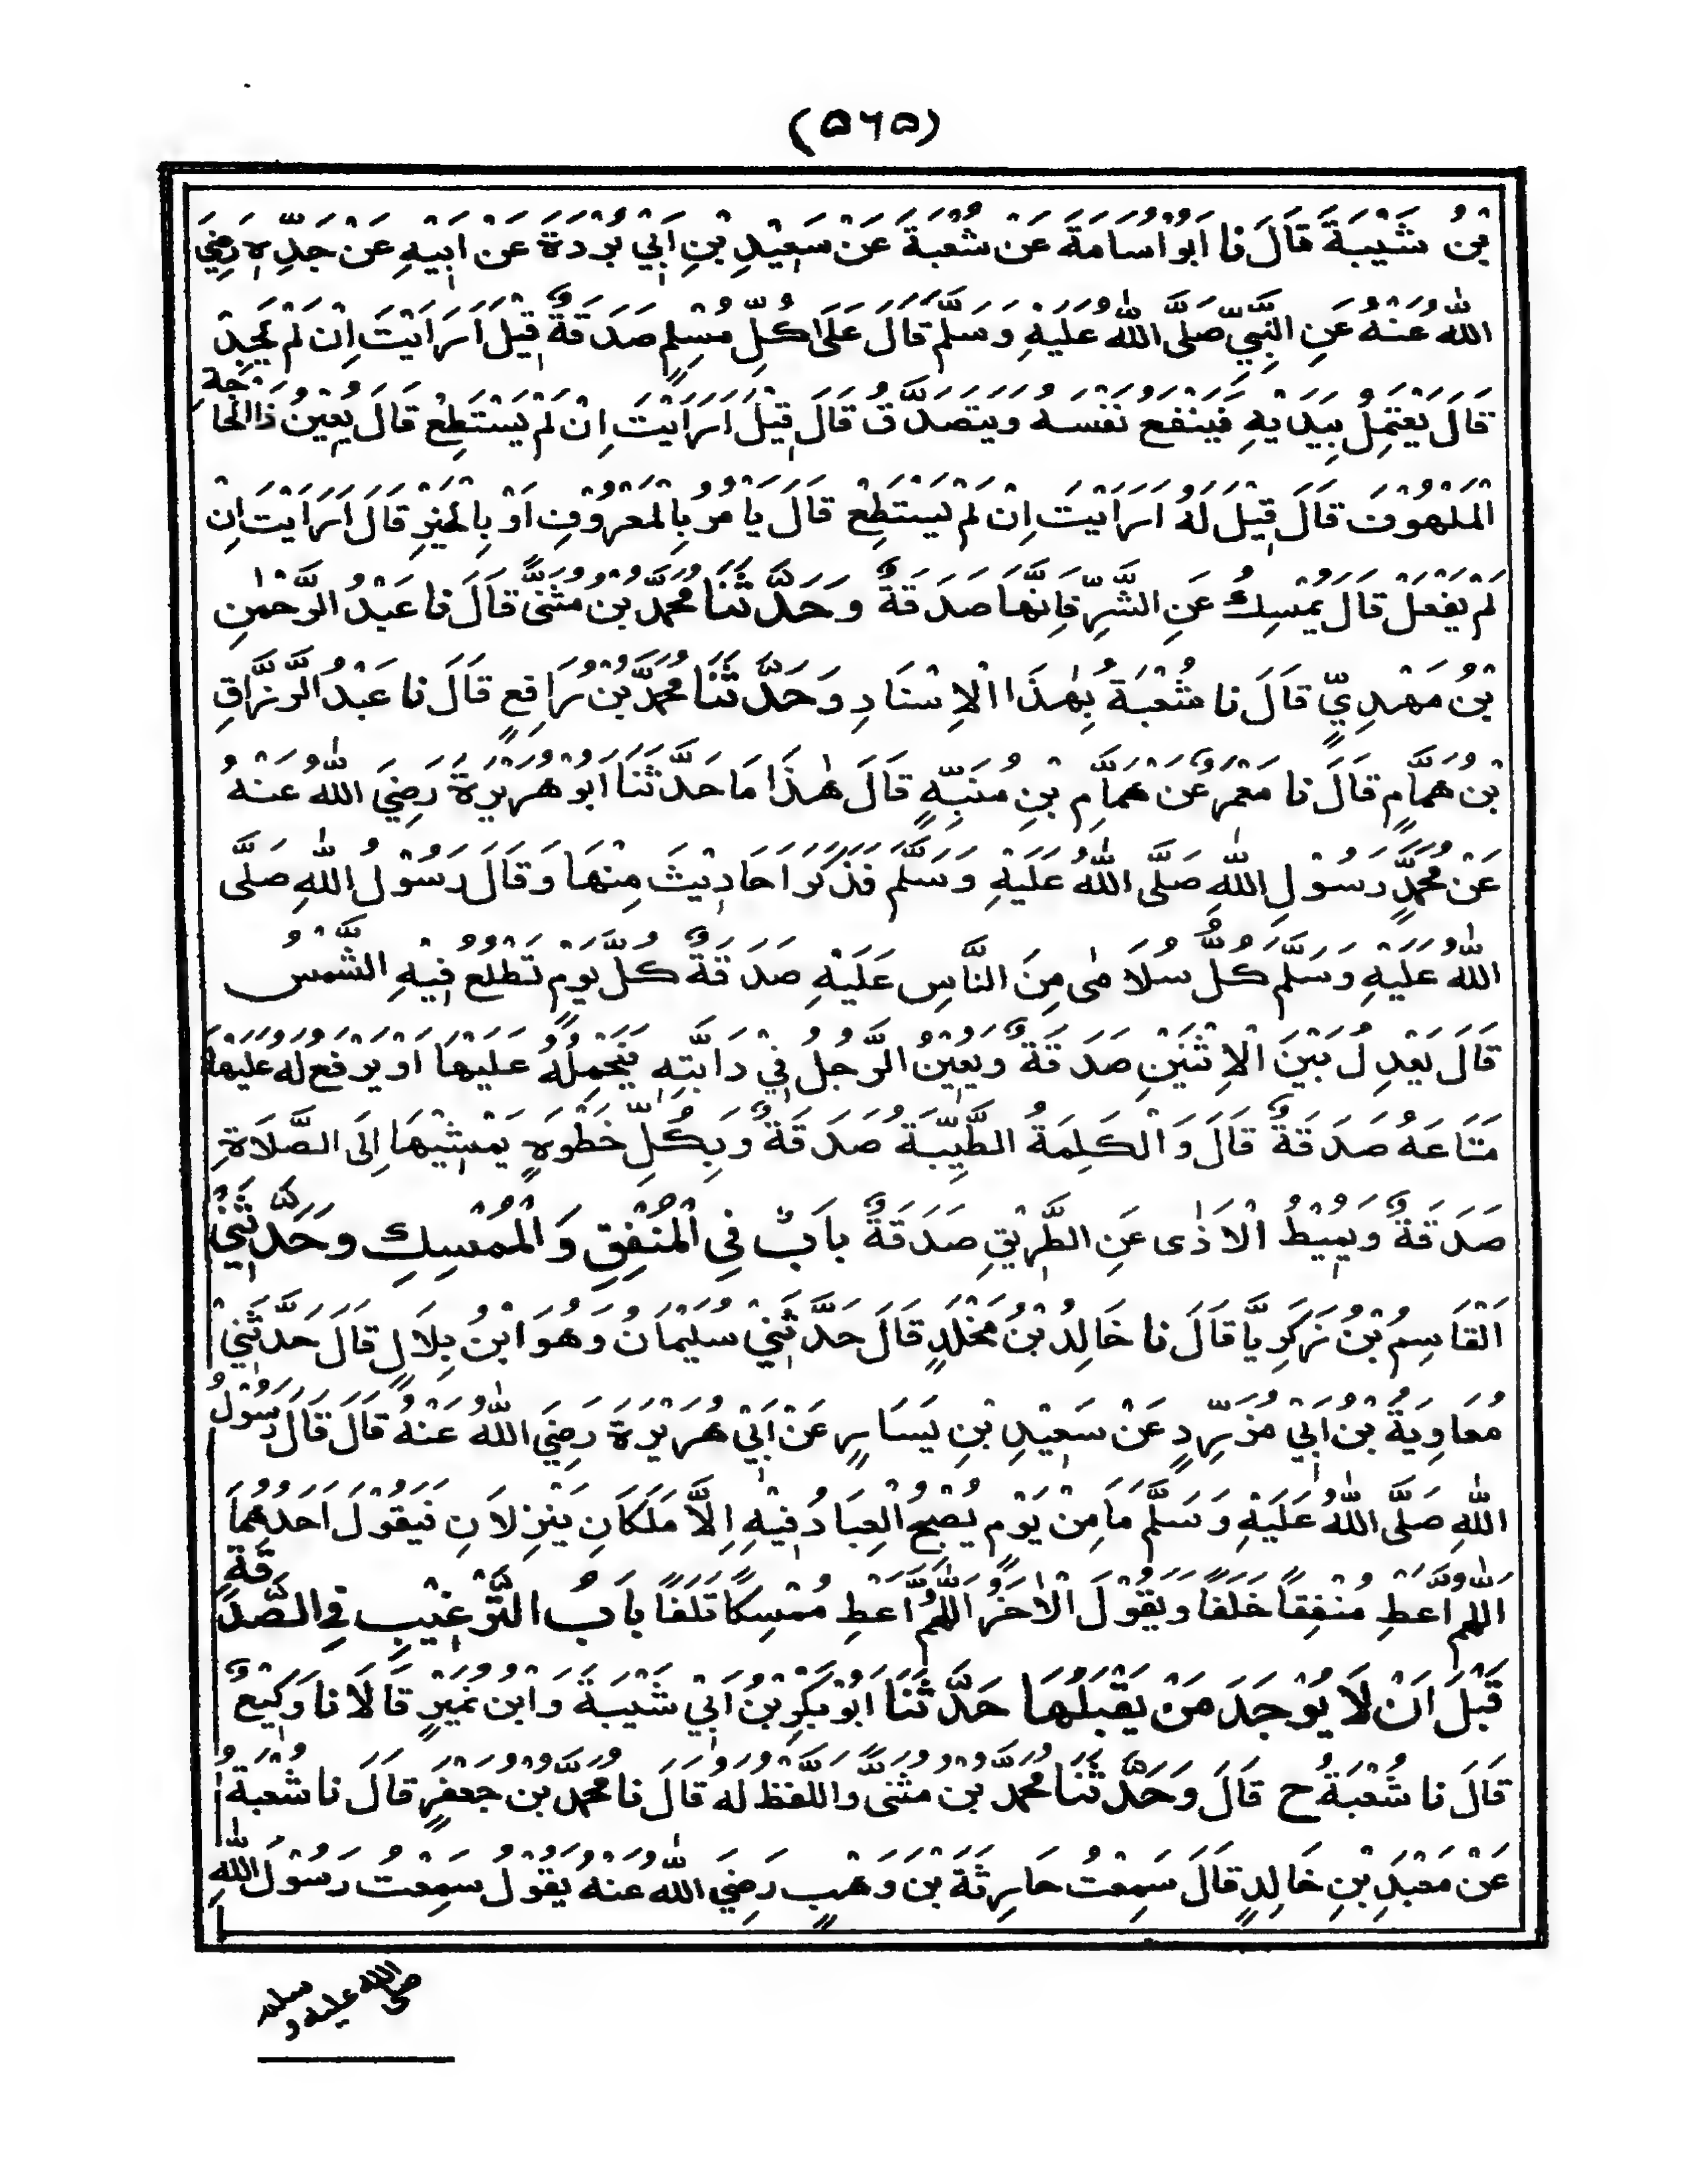 (۵۶۵)
بْنُ شَيْبَةَ قَالَ نَا اَبُوْ اُسَامَةَ عَنْ شُعْبَةَ عَنْ سَعِيْدِ بْنِ اَبِيْ بُرْدَةَ عَنْ اَبِيْهِ عَنْ جَدِّهٖ رَضِيَ
اللّٰهُ عَنْهُ عَنِ النَّبِيِّ صَلَّى اللّٰهُ عَلَيْهِ وَسَلَّمَ قَالَ عَلَى كُلِّ مُسْلِمٍ صَدَقَةٌ قِيْلَ اَرَاَيْتَ اِنْ لَمْ يَجِدْ
قَالَ يَعْتَمِلُ بِيَدَيْهِ فَيَنْفَعُ نَفْسَهُ وَيَتَصَدَّقُ قَالَ قِيْلَ اَرَاَيْتَ اِنْ لَمْ يَسْتَطِعْ قَالَ يُعِيْنُ ذَا الْحَاجَةِ
الْمَلْهُوْفَ قَالَ قِيْلَ لَهُ اَرَاَيْتَ اِنْ لَمْ يَسْتَطِعْ قَالَ يَاْمُرُ بِالْمَعْرُوْفِ اَوْ بِالْخَيْرِ قَالَ اَرَاَيْتَ اِنْ
لَمْ يَفْعَلْ قَالَ يُمْسِكُ عَنِ الشَّرِّ فَاِنَّهَا صَدَقَةٌ وَحَدَّثَنَا مُحَمَّدُ بْنُ مُثَنًّى قَالَ نَا عَبْدُ الرَّحْمٰنِ
بْنُ مَهْدِيٍّ قَالَ نَا شُعْبَةُ بِهٰذَا الْاِسْنَادِ وَحَدَّثَنَا مُحَمَّدُ بْنُ رَافِعٍ قَالَ نَا عَبْدُ الرَّزَّاقِ
بْنُ هَمَّامٍ قَالَ نَا مَعْمَرٌ عَنْ هَمَّامِ بْنِ مُنَبِّهٍ قَالَ هٰذَا مَا حَدَّثَنَا اَبُوْ هُرَيْرَةَ رَضِيَ اللّٰهُ عَنْهُ
عَنْ مُحَمَّدٍ رَسُوْلِ اللّٰهِ صَلَّى اللّٰهُ عَلَيْهِ وَسَلَّمَ فَذَكَرَ اَحَادِيْثَ مِنْهَا وَقَالَ رَسُوْلُ اللّٰهِ صَلَّى
اللّٰهُ عَلَيْهِ وَسَلَّمَ كُلُّ سُلَامٰى مِنَ النَّاسِ عَلَيْهِ صَدَقَةٌ كُلَّ يَوْمٍ تَطْلُعُ فِيْهِ الشَّمْسُ
قَالَ يَعْدِلُ بَيْنَ الْاِثْنَيْنِ صَدَقَةٌ وَيُعِيْنُ الرَّجُلُ فِيْ دَابَّتِهٖ فَيَحْمِلُهُ عَلَيْهَا اَوْ يَرْفَعُ لَهُ عَلَيْهَا
مَتَاعَهُ صَدَقَةٌ قَالَ وَالْكَلِمَةُ الطَّيِّبَةُ صَدَقَةٌ وَبِكُلِّ خَطْوَةٍ يَمْشِيْهَا اِلَى الصَّلَاةِ
صَدَقَةٌ وَيُمِيْطُ الْاَذٰى عَنِ الطَّرِيْقِ صَدَقَةٌ بَابٌ فِي الْمُنْفِقِ وَالْمُمْسِكِ وَحَدَّثَنِيْ
الْقَاسِمُ بْنُ زَكَرِيَّا قَالَ نَا خَالِدُ بْنُ مَخْلَدٍ قَالَ حَدَّثَنِيْ سُلَيْمَانُ وَهُوَ ابْنُ بِلَالٍ قَالَ حَدَّثَنِيْ
مُعَاوِيَةُ بْنُ اَبِيْ مُزَرِّدٍ عَنْ سَعِيْدِ بْنِ يَسَارٍ عَنْ اَبِيْ هُرَيْرَةَ رَضِيَ اللّٰهُ عَنْهُ قَالَ قَالَ رَسُوْلُ
اللّٰهِ صَلَّى اللّٰهُ عَلَيْهِ وَسَلَّمَ مَا مِنْ يَوْمٍ يُصْبِحُ الْعِبَادُ فِيْهِ اِلَّا مَلَكَانِ يَنْزِلَانِ فَيَقُوْلُ اَحَدُهُمَا
اللّٰهُمَّ اَعْطِ مُنْفِقًا خَلَفًا وَيَقُوْلُ الْاٰخَرُ اللّٰهُمَّ اَعْطِ مُمْسِكًا تَلَفًا بَابُ التَّرْغِيْبِ فِي الصَّدَقَةِ
قَبْلَ اَنْ لَا يُوْجَدَ مَنْ يَقْبَلُهَا حَدَّثَنَا اَبُوْ بَكْرِ بْنُ اَبِيْ شَيْبَةَ وَابْنُ نُمَيْرٍ قَالَا نَا وَكِيْعٌ
قَالَ نَا شُعْبَةُ ح قَالَ وَحَدَّثَنَا مُحَمَّدُ بْنُ مُثَنًّى وَاللَّفْظُ لَهُ قَالَ نَا مُحَمَّدُ بْنُ جَعْفَرٍ قَالَ نَا شُعْبَةُ
عَنْ مَعْبَدِ بْنِ خَالِدٍ قَالَ سَمِعْتُ حَارِثَةَ بْنَ وَهْبٍ رَضِيَ اللّٰهُ عَنْهُ يَقُوْلُ سَمِعْتُ رَسُوْلَ اللّٰهِ
صلى الله عليه وسلم